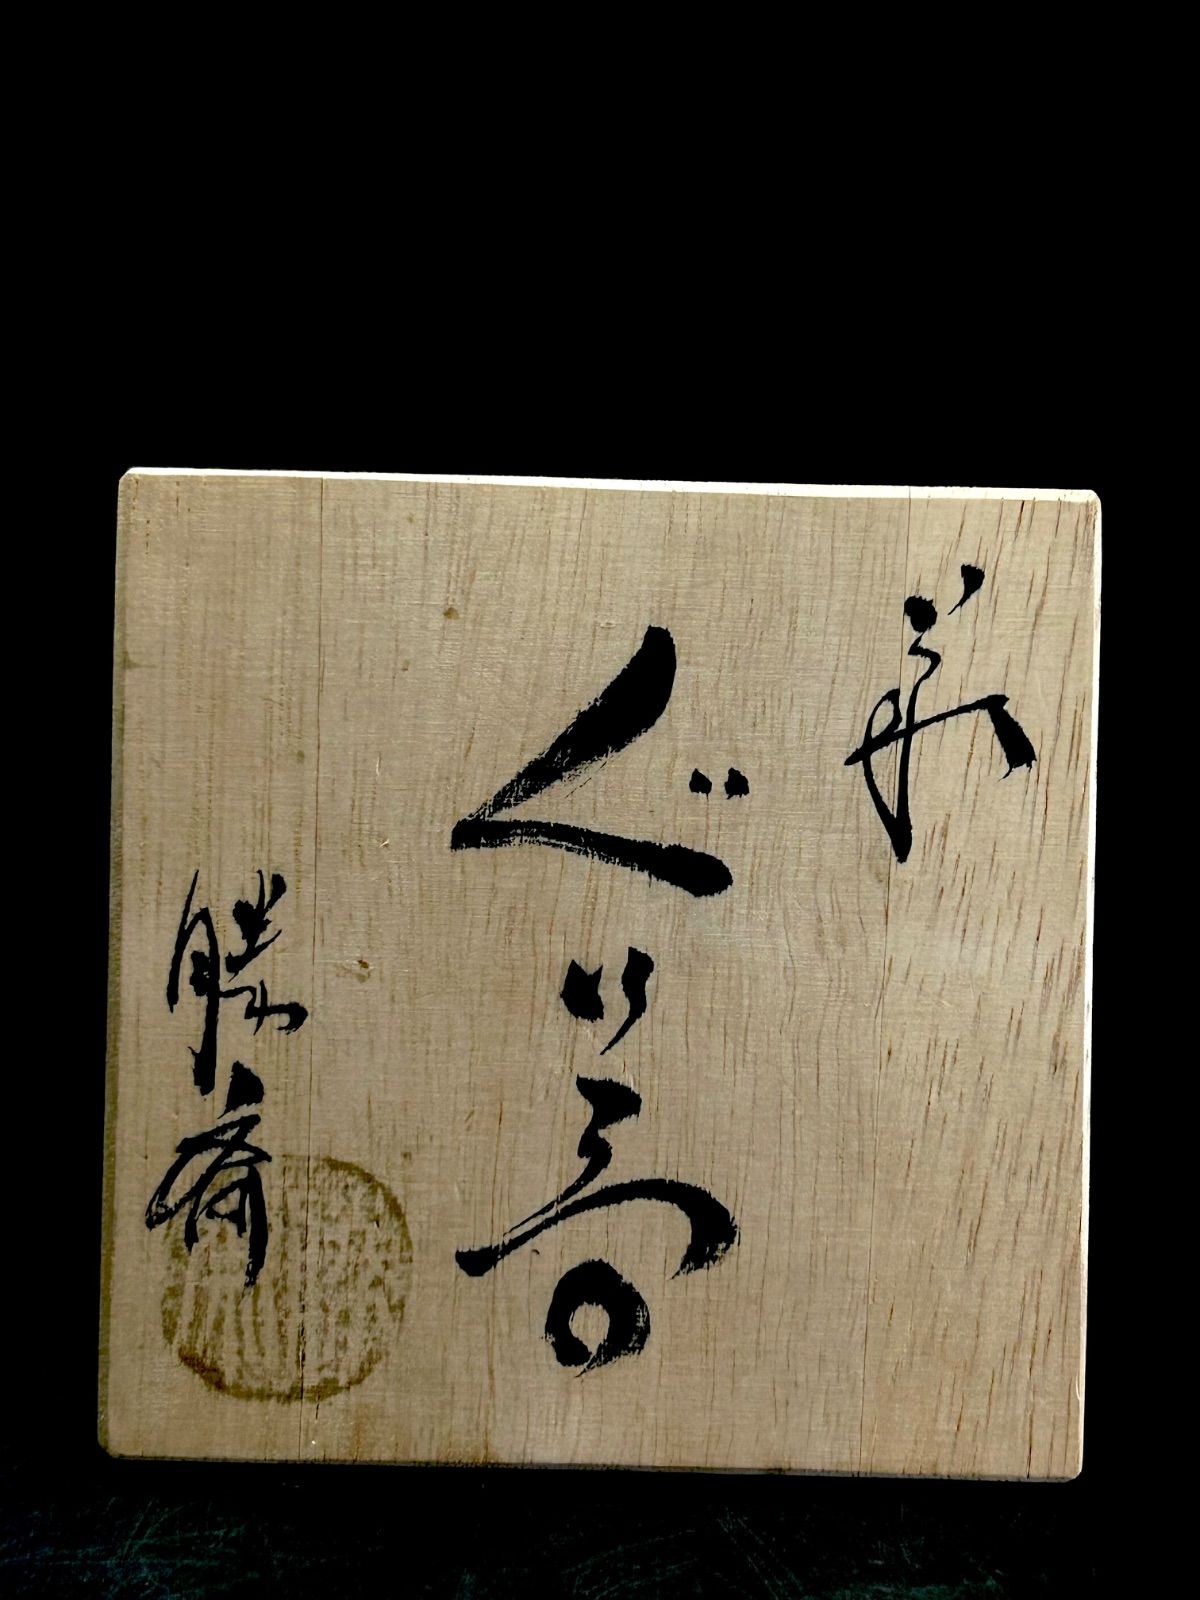 萩
ぐい呑
勝斎